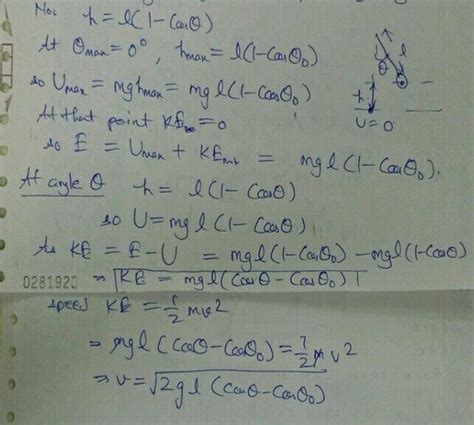 Now h = l(1-Cosθ)
At θmax = 0°, hmax = l(1-Cosθ₀)
so Umax = mghmax = mgl(1-Cosθ₀)
At that point KE = 0
so E = Umax + KE = mgl(1-Cosθ₀).
l
θ
h
U = 0
At angle θ h = l(1-Cosθ)
so U = mgl(1-Cosθ)
As KE = E-U = mgl(1-Cosθ₀) - mgl(1-Cosθ)
⇒ KE = mgl(Cosθ-Cosθ₀)
0281920
speed KE = 1/2 mv²
⇒ mgl(Cosθ-Cosθ₀) = 1/2 mv²
⇒ v = √2gl(Cosθ-Cosθ₀)